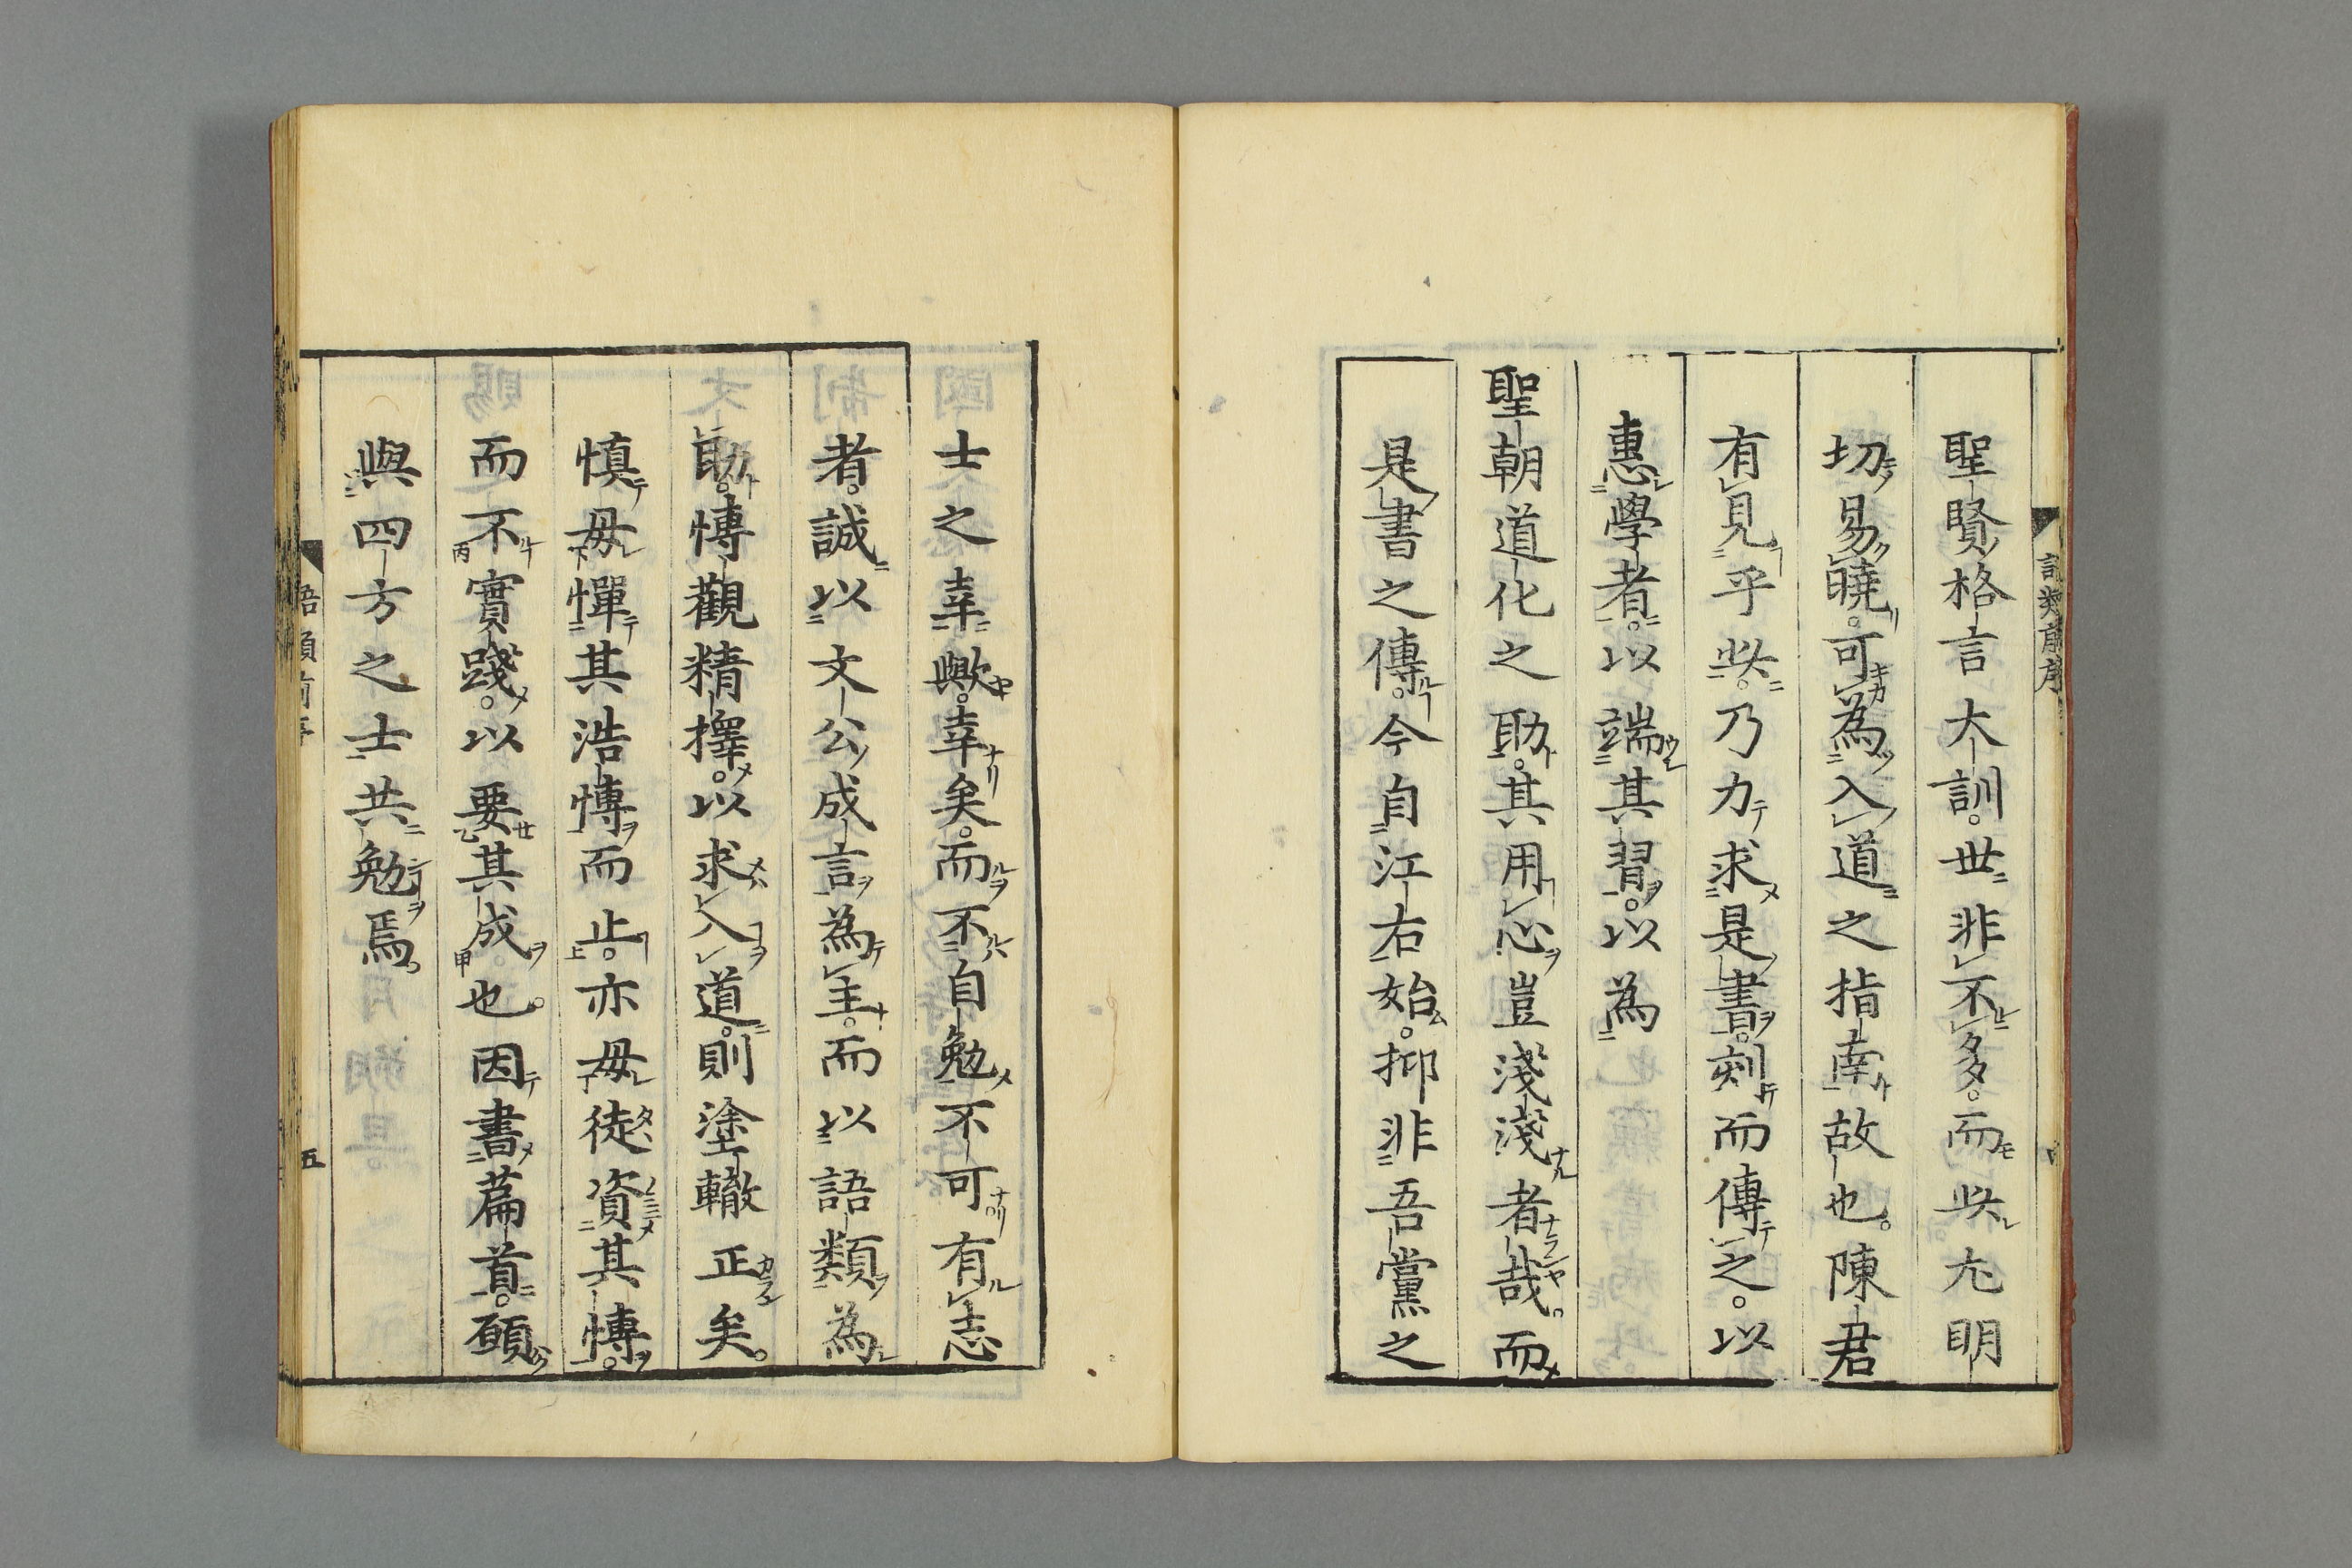 聖賢格言大訓。世非不多。而此尤明
切易曉。可為入道之指南故也。陳君
有見乎此。乃力求是書。刻而傳之。以
惠學者。以端其習。以為
聖朝道化之助。其用心豈淺淺者哉。而
是書之傳。今自江右始。抑非吾黨之
士之幸歟。幸矣。而不自勉不可有志
者。誠以文公成言為主。而以語類為
助。博觀精擇。以求入道。則塗轍正矣。
慎毋憚其浩博而止。亦毋徒資其博。
而不實踐。以要其成也。因書篇首。願
與四方之士共勉焉。
五